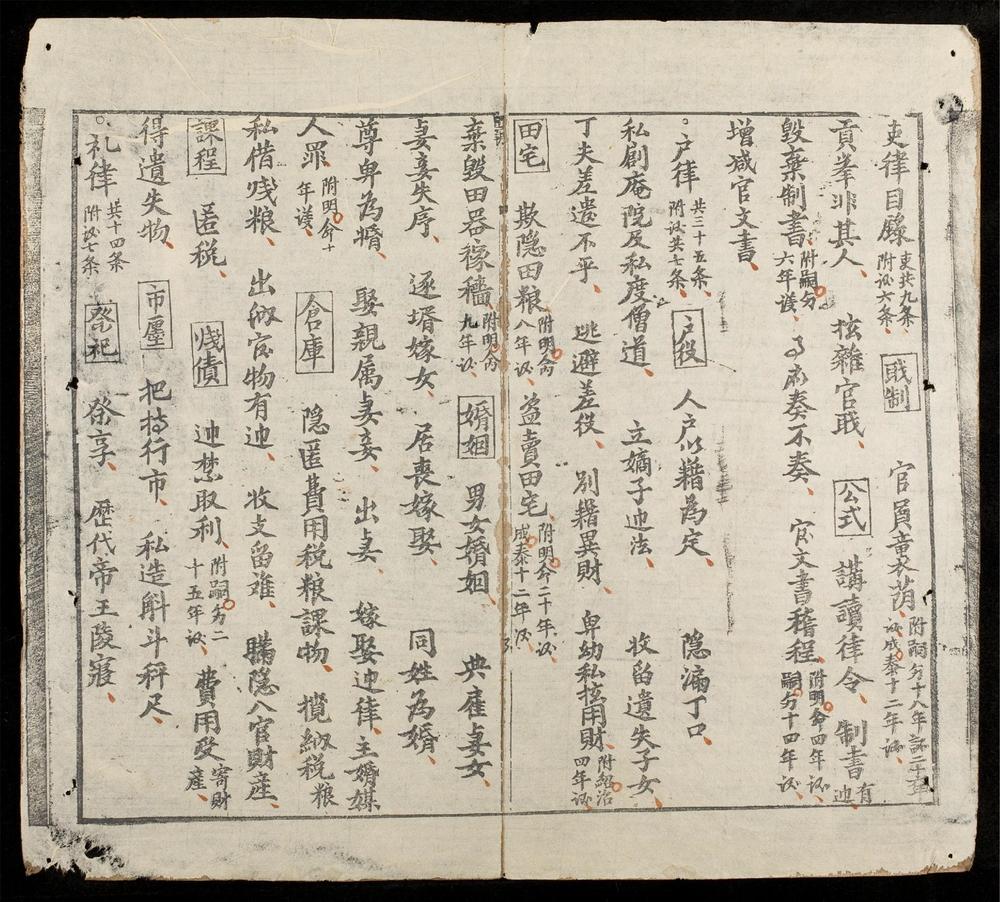 吏律目録 吏共九条附议六条 戝制 官員童衣荫 附嗣分十八年議二十五年议成泰十二年议
貢挙非其人 㧓雜官戝 公式 講讀律令 制書有迎
毀棄制書 附嗣分六年议 事应奏不奏 官文書稽程 附明命四年议嗣分十四年议
增减官文書
户律 共三十五条附议共七条 户役 人户以籍為定 隐漏丁口
私剏庵院及私度僧道 立嫡子迎法 收留遺失子女
丁夫差遣不平 逃避差役 別籍異財 卑幼私㧓用財 附紹治四年议
田宅 欺隐田粮 附明命八年议 盗賣田宅 附明命二十年议成泰十二年议
棄毀田器稼穡 附明命九年议 婚姻 男女婚姻 典雇妻女
妻妾失序 逐壻嫁女 居喪嫁娶 同姓為婚
尊卑為婚 娶親属妻妾 出妻 嫁娶迎律主婚媒
人罪 附明命十年议 倉庫 隐匿費用税粮課物 攬納税粮
私借戔粮 出納官物有迎 收支留难 瞞隐入官財産
課程 匿税 戔債 迎禁取利 附嗣分二十五年议 費用受寄財産
得遺失物 市廛 把持行市 私造斛斗秤尺
礼律 共十四条附议七条 祭祀 祭享 歴代帝王陵寝